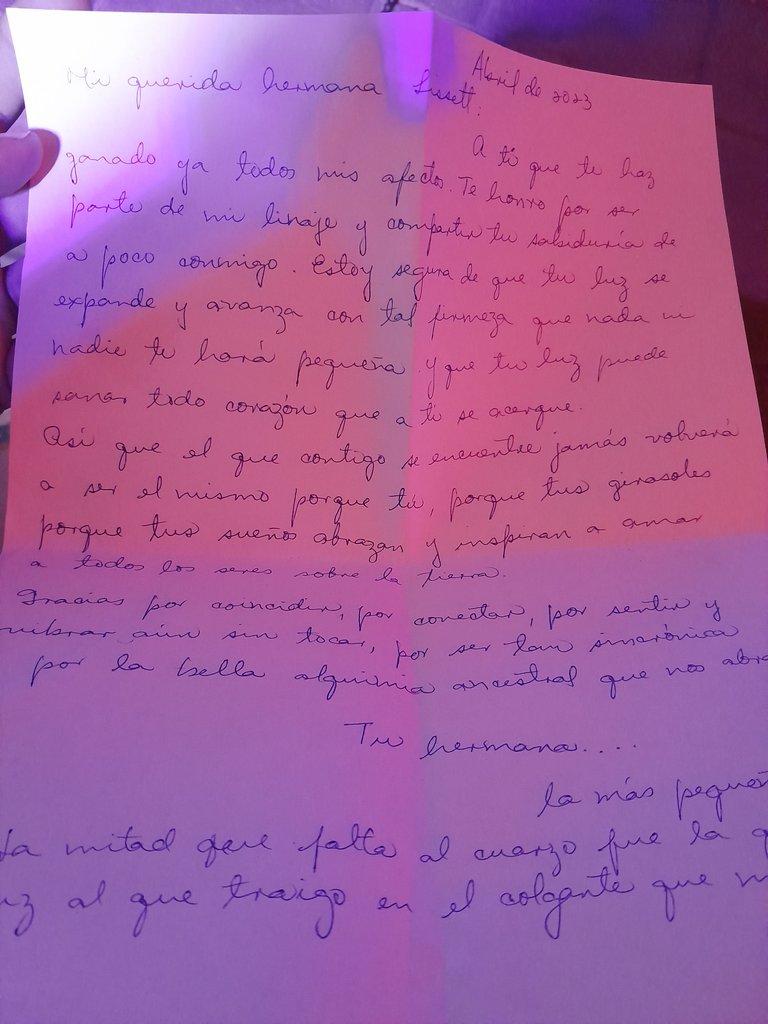 Abril de 2023
Mi querida hermana Lissett:
A ti que te haz
ganado ya todos mis afectos. Te honro por ser
parte de mi linaje y compartir tu sabiduría de
a poco conmigo. Estoy segura de que tu luz se
expande y avanza con tal firmeza que nada ni
nadie te hará pequeña y que tu luz puede
sanar todo corazón que a ti se acerque.
Asi que el que contigo se encuentre jamás volverá
a ser el mismo porque tú, porque tus girasoles
porque tus sueños abrazan y inspiran a amar
a todos los seres sobre la tierra.
Gracias por coincidir, por conectar, por sentir y
vibrar aún sin tocar, por ser tan sincrónica
por la bella alquimia ancestral que nos abra
Tu hermana....
la más pequeñ
La mitad que falta al cuarzo fue la q
uz al que traigo en el colgante que m